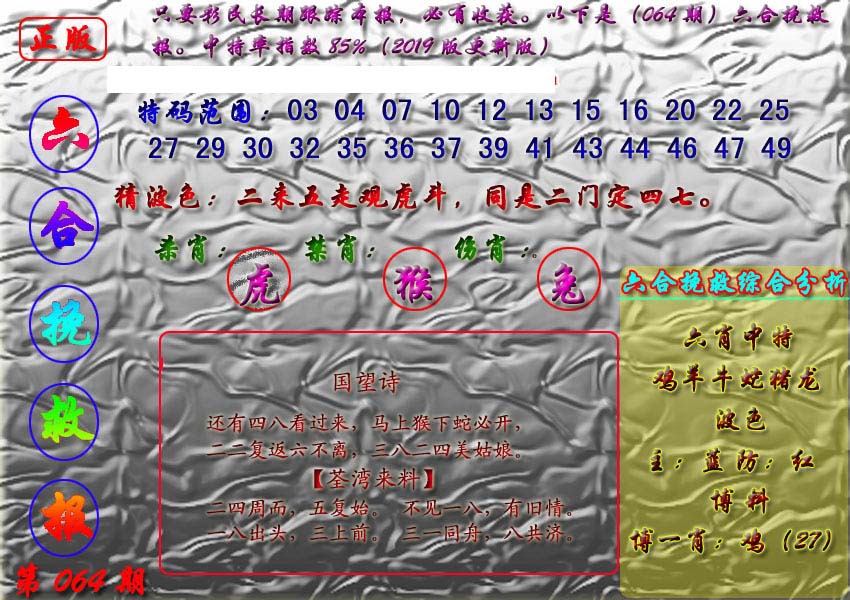 正版
只要彩民长期跟踪本报，必有收获。以下是（064期）六合挽救
报。中特率指数85%（2019版更新版）
特码范围：03 04 07 10 12 13 15 16 20 22 25
27 29 30 32 35 36 37 39 41 43 44 46 47 49
猜波色：二来五走观虎斗，同是二门定四七。
杀肖：虎 禁肖：猴 伤肖：兔
六合挽救报
第064期
国望诗
还有四八看过来，马上猴下蛇必开，
二二复返六不离，三八二四美姑娘。
【荃湾来料】
二四周而，五复始。 不见一八，有旧情。
一八出头，三上前。 三一同舟，八共济。
六合挽救综合分析
六肖中特
鸡羊牛蛇猪龙
波色
主：蓝防：红
博料
博一肖：鸡（27）